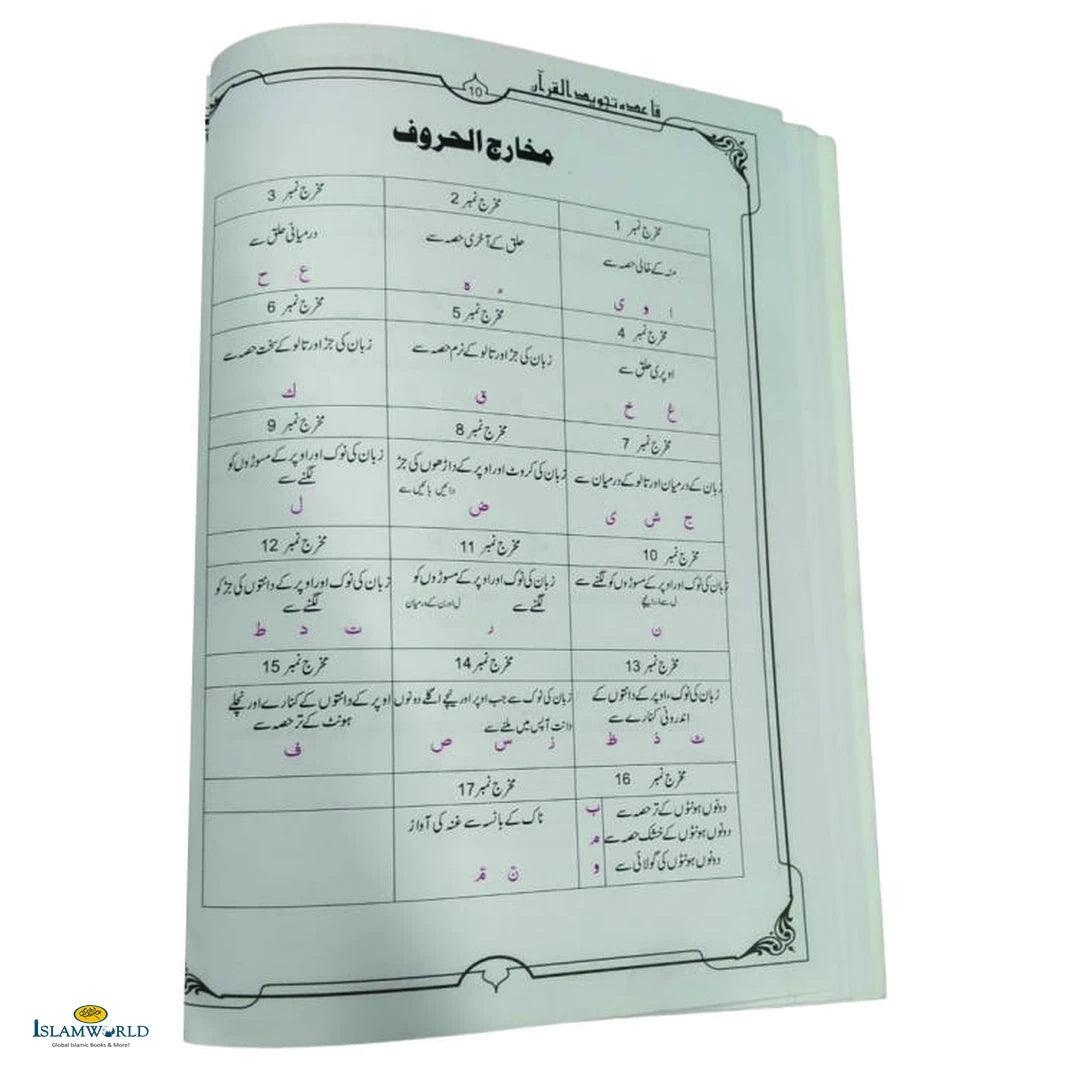 قاعدہ تجوید القرآن
10
مخارج الحروف
مخرج نمبر 1
منہ کے خالی حصہ سے
ا و ی
مخرج نمبر 2
حلق کے آخری حصہ سے
ء ہ
مخرج نمبر 3
درمیانی حلق سے
ع ح
مخرج نمبر 4
اوپری حلق سے
غ خ
مخرج نمبر 5
زبان کی جڑ اور تالو کے نرم حصہ سے
ق
مخرج نمبر 6
زبان کی جڑ اور تالو کے سخت حصہ سے
ك
مخرج نمبر 7
زبان کے درمیان اور تالو کے درمیان سے
ج ش ی
مخرج نمبر 8
زبان کی کروٹ اور اوپر کے داڑھوں کی جڑ
دائیں بائیں سے
ض
مخرج نمبر 9
زبان کی نوک اور اوپر کے مسوڑوں کو
لگنے سے
ل
مخرج نمبر 10
زبان کی نوک اور اوپر کے مسوڑوں کو لگنے سے
ل سے ذرا نیچے
ن
مخرج نمبر 11
زبان کی نوک اور اوپر کے مسوڑوں کو
لگنے سے ل اور ن کے درمیان
ر
مخرج نمبر 12
زبان کی نوک اور اوپر کے دانتوں کی جڑ کو
لگنے سے
ت د ط
مخرج نمبر 13
زبان کی نوک، اوپر کے دانتوں کے
اندرونی کنارے سے
ث ذ ظ
مخرج نمبر 14
زبان کی نوک سے جب اوپر اور نیچے اگلے دونوں
دانت آپس میں ملنے سے
ز س ص
مخرج نمبر 15
اوپر کے دانتوں کے کنارے اور نچلے
ہونٹ کے تر حصہ سے
ف
مخرج نمبر 16
دونوں ہونٹوں کے تر حصہ سے ب
دونوں ہونٹوں کے خشک حصہ سے م
دونوں ہونٹوں کی گولائی سے و
مخرج نمبر 17
ناک کے بانسہ سے غنہ کی آواز
نّ مّ
ISLAMWORLD
Global Islamic Books & More!